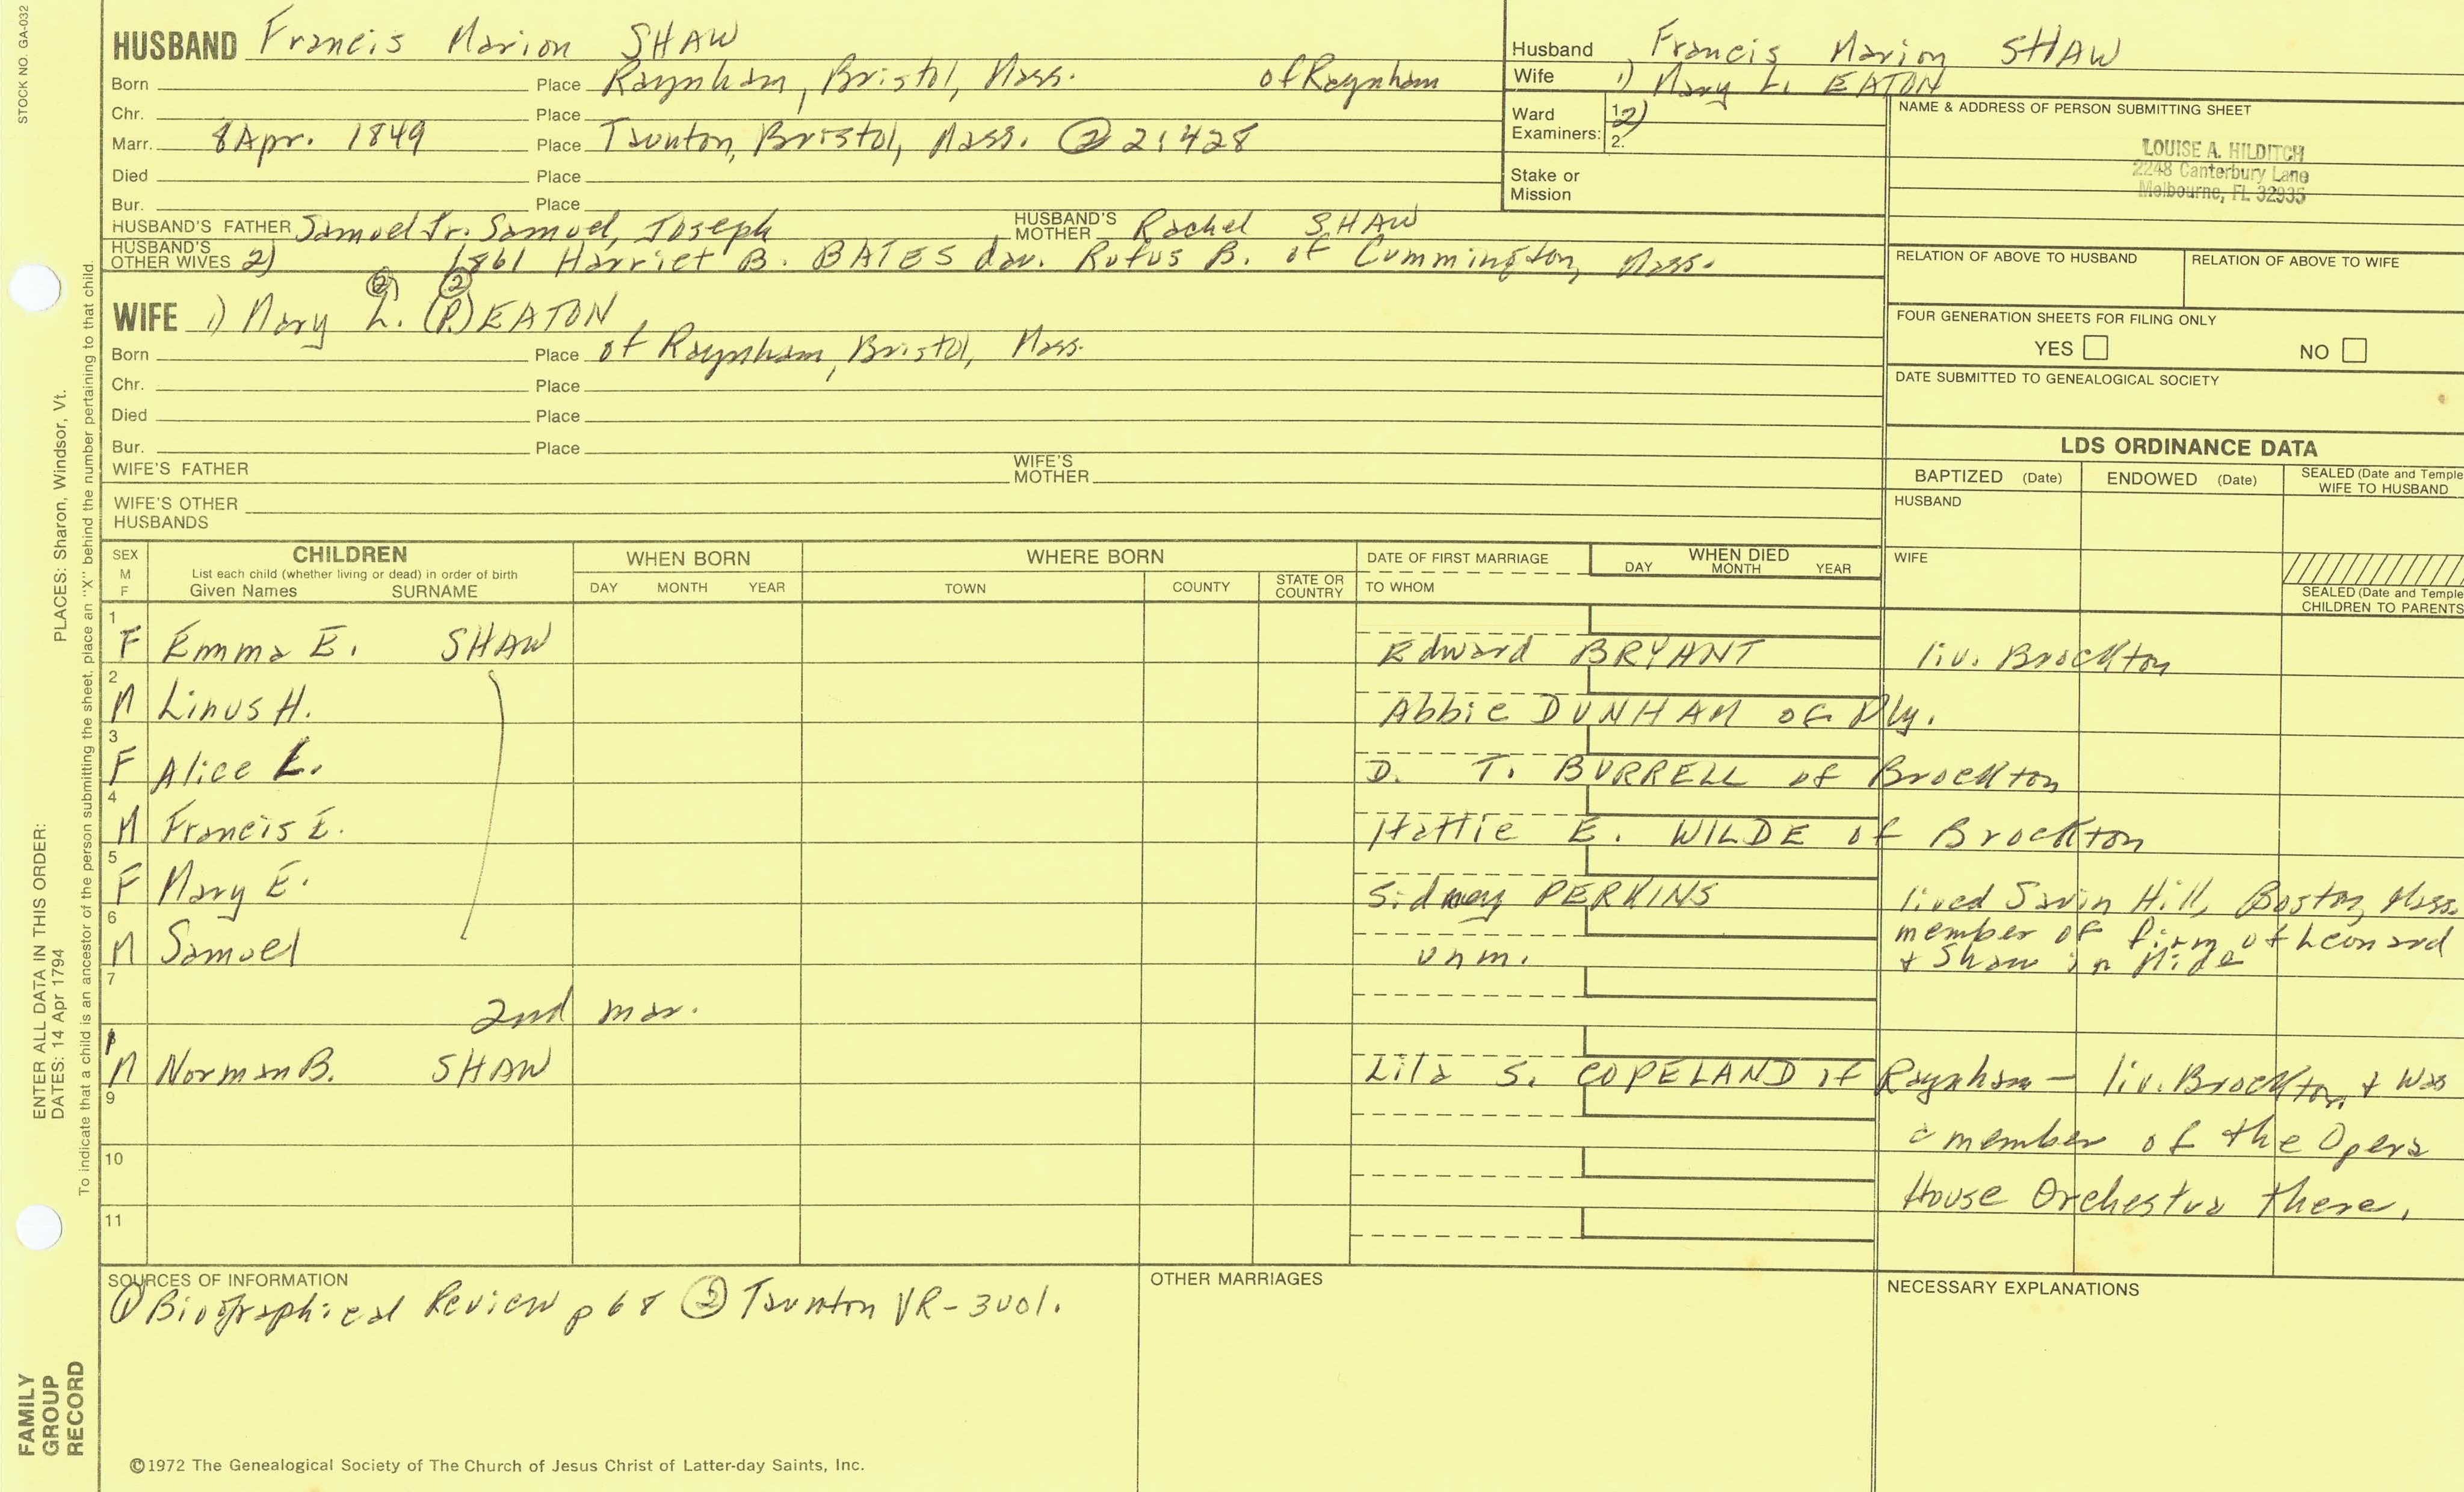 STOCK NO. GA-032
HUSBAND Francis Marion SHAW
Born Place Raynham, Bristol, Mass. of Raynham
Chr. Place
Marr. 8 Apr. 1849 Place Taunton, Bristol, Mass. ② 2:428
Died Place
Bur. Place
HUSBAND'S FATHER Samuel Jr. Samuel, Joseph HUSBAND'S MOTHER Rachel SHAW
HUSBAND'S OTHER WIVES 2) 1861 Harriet B. BATES dau. Rufus B. of Cummington, Mass.
② ②
WIFE 1) Mary L. (P.) EATON
Born Place of Raynham, Bristol, Mass.
Chr. Place
Died Place
Bur. Place
WIFE'S FATHER WIFE'S MOTHER
WIFE'S OTHER HUSBANDS
Husband Francis Marion SHAW
Wife 1) Mary L. EATON
Ward Examiners: 1. 2)
2.
Stake or Mission
NAME & ADDRESS OF PERSON SUBMITTING SHEET
LOUISE A. HILDITCH
2248 Canterbury Lane
Melbourne, FL 32935
RELATION OF ABOVE TO HUSBAND RELATION OF ABOVE TO WIFE
FOUR GENERATION SHEETS FOR FILING ONLY
YES NO
DATE SUBMITTED TO GENEALOGICAL SOCIETY
LDS ORDINANCE DATA
BAPTIZED (Date) ENDOWED (Date) SEALED (Date and Temple
WIFE TO HUSBAND
HUSBAND
WIFE
SEALED (Date and Temple
CHILDREN TO PARENTS
SEX M F CHILDREN WHEN BORN WHERE BORN DATE OF FIRST MARRIAGE WHEN DIED
List each child (whether living or dead) in order of birth DAY MONTH YEAR
Given Names SURNAME DAY MONTH YEAR TOWN COUNTY STATE OR COUNTRY TO WHOM
1 F Emma E. SHAW Edward BRYANT liv. Brockton
2 M Linus H. Abbie DUNHAM of Ply.
3 F Alice L. D. T. BURRELL of Brockton
4 M Francis E. Hattie E. WILDE of Brockton
5 F Mary E. Sidney PERKINS lived Savin Hill, Boston, Mass.
6 M Samuel unm. member of firm of Leonard
& Shaw in
7 2nd mar.
1 M Norman B. SHAW Lila S. COPELAND of Raynham - liv. Brockton & was
9 a member of the Opera
10 House Orchestra there.
11
SOURCES OF INFORMATION OTHER MARRIAGES NECESSARY EXPLANATIONS
① Biographical Review p 68 ② Taunton VR - 3 vol.
©1972 The Genealogical Society of The Church of Jesus Christ of Latter-day Saints, Inc.
FAMILY
GROUP
RECORD
ENTER ALL DATA IN THIS ORDER:
DATES: 14 Apr 1794 PLACES: Sharon, Windsor, Vt.
To indicate that a child is an ancestor of the person submitting the sheet, place an "X" behind the number pertaining to that child.